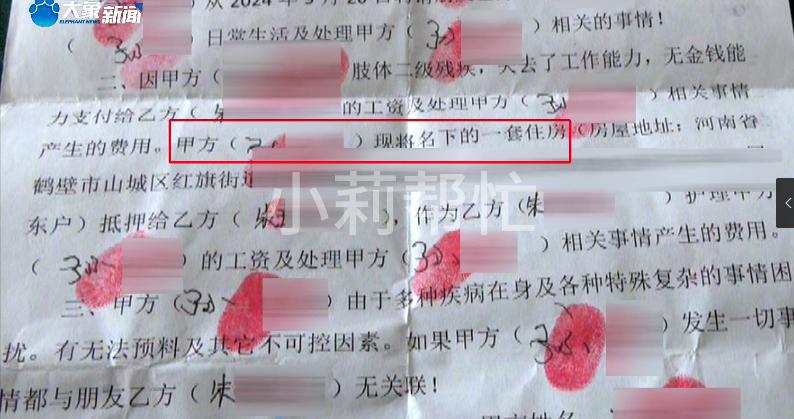 大象新闻
ELEPHANT NEWS
从2024年5月20日
（）日常生活及处理甲方（）相关的事情！
二、因甲方（）肢体二级残疾，失去了工作能力，无金钱能
力支付给乙方（朱）的工资及处理甲方（）相关事情
产生的费用。甲方（）现将名下的一套住房（房屋地址：河南省
鹤壁市山城区红旗街道
东户）抵押给乙方（朱），作为乙方（朱）护理甲方
（）的工资及处理甲方（）相关事情产生的费用。
三、甲方（）由于多种疾病在身及各种特殊复杂的事情困
扰。有无法预料及其它不可控因素。如果甲方（）发生一切事
情都与朋友乙方（朱）无关联！
甲方姓名
小莉帮忙